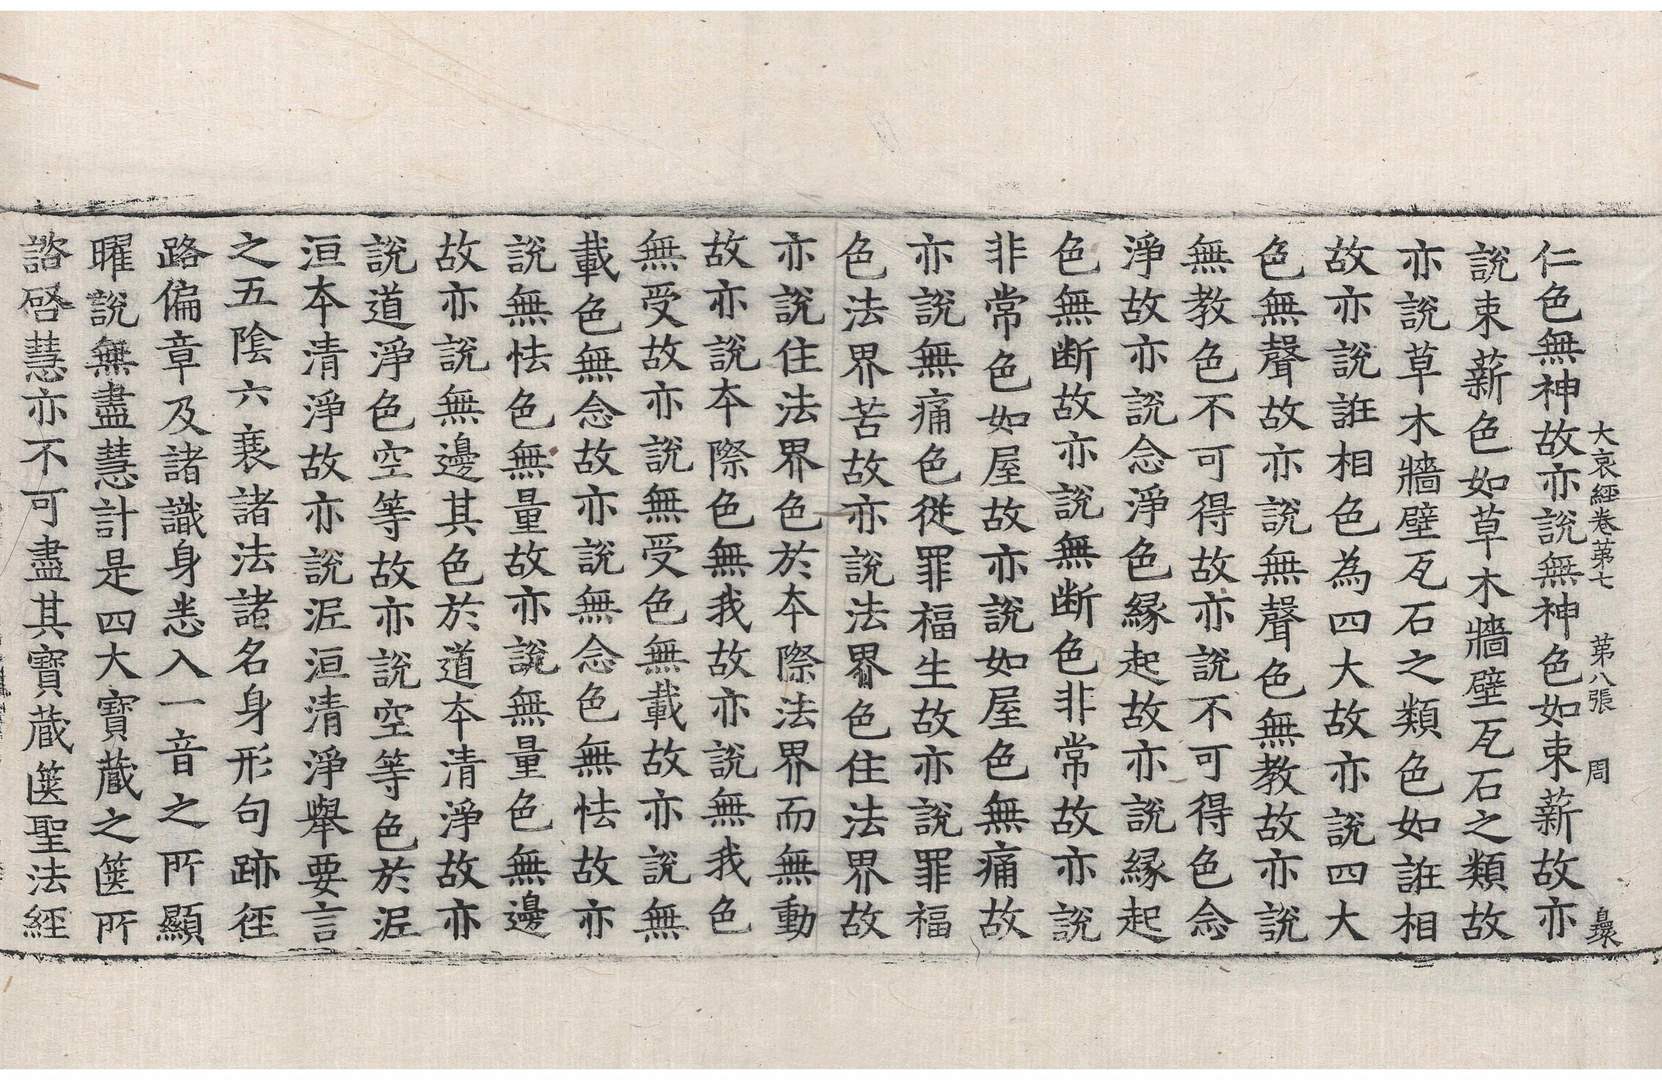 大哀經卷第七 第八張 周
仁色無神故亦說無神色如束薪故亦
說束薪色如草木牆壁瓦石之類故
亦說草木牆壁瓦石之類色如誑相
故亦說誑相色為四大故亦說四大
色無聲故亦說無聲色無教故亦說
無教色不可得故亦說不可得色念
淨故亦說念淨色緣起故亦說緣起
色無断故亦說無断色非常故亦說
非常色如屋故亦說如屋色無痛故
亦說無痛色從罪福生故亦說罪福
色法界苦故亦說法界色住法界故
亦說住法界色於夲際法界而無動
故亦說夲際色無我故亦說無我色
無受故亦說無受色無載故亦說無
載色無念故亦說無念色無怯故亦
說無怯色無量故亦說無量色無邊
故亦說無邊其色於道夲清淨故亦
說道淨色空等故亦說空等色於泥
洹夲清淨故亦說泥洹清淨舉要言
之五陰六衰諸法諸名身形句跡徑
路偏章及諸識身悉入一音之所顯
曜說無盡慧計是四大寶藏之篋所
諮啓慧亦不可盡其寶藏篋聖法經